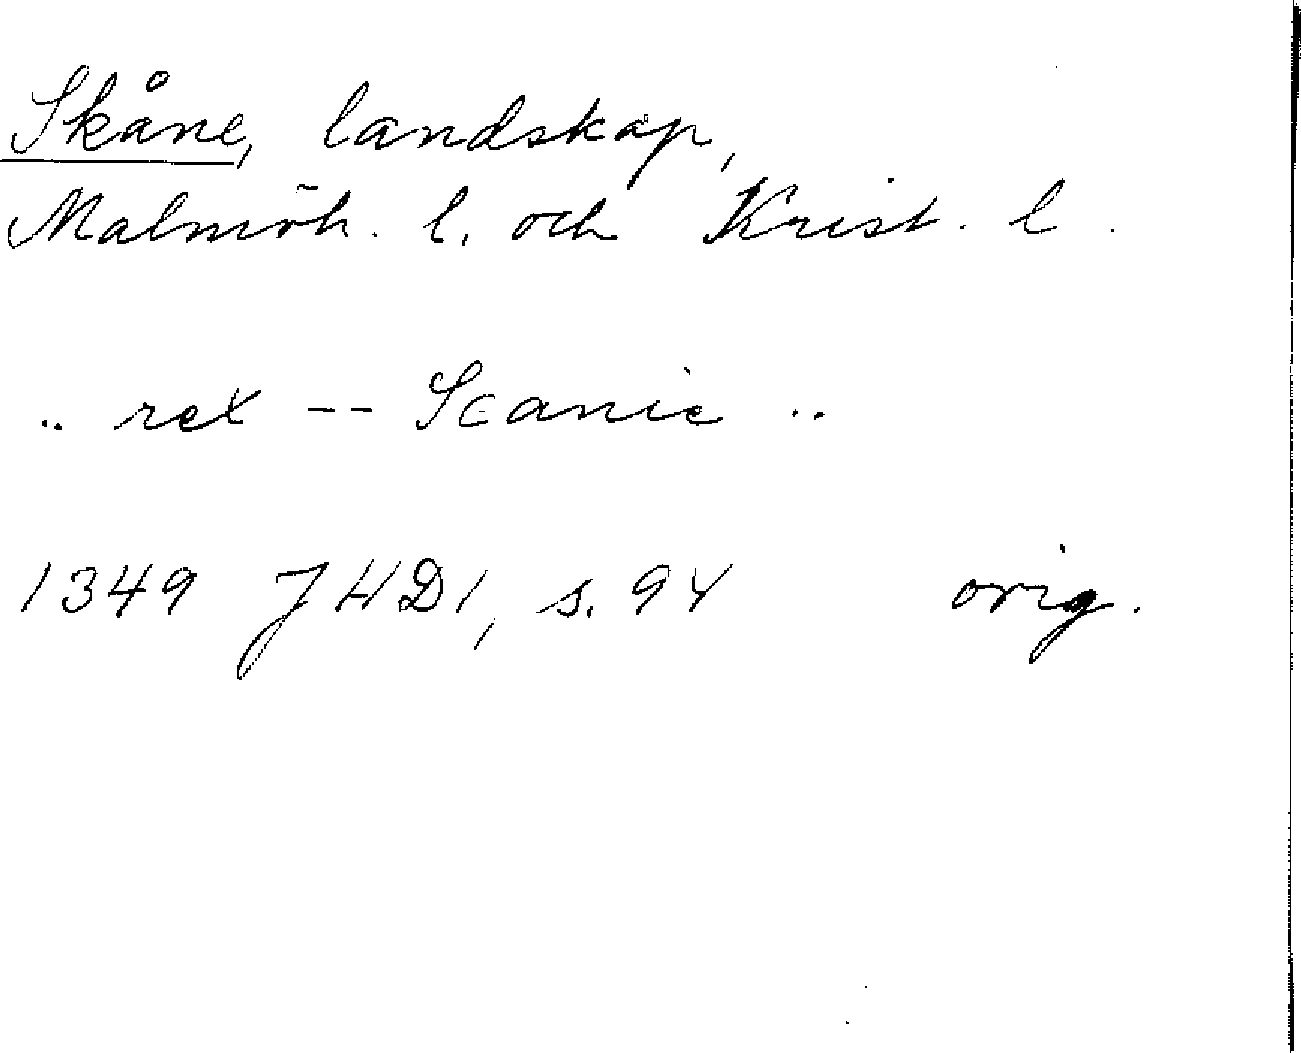 Skåne, landskap,
Malmöh. l. och Krist. l.
.. rex -- Scanie ..
1349 JHD1, s. 94 orig.